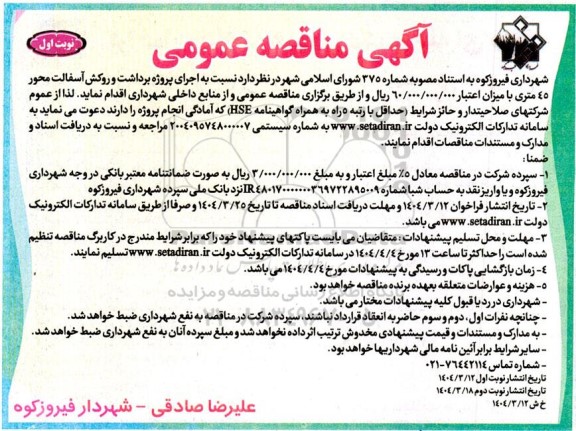 آگهی مناقصه عمومی
نوبت اول
شهرداری فیروزکوه به استناد مصوبه شماره ۳۷۵ شورای اسلامی شهر در نظر دارد نسبت به اجرای پروژه برداشت و روکش آسفالت محور
۴۵ متری با میزان اعتبار ۶۰/۰۰۰/۰۰۰/۰۰۰ ریال و از طریق برگزاری مناقصه عمومی و از منابع داخلی شهرداری اقدام نماید. لذا از عموم
شرکتهای صلاحیتدار و حائز شرایط (حداقل با رتبه ۵ راه به همراه گواهینامه HSE) که آمادگی انجام پروژه را دارند دعوت می نماید به
سامانه تدارکات الکترونیک دولت www.setadiran.ir به شماره سیستمی ۲۰۰۴۰۹۵۷۴۸۰۰۰۰۰۷ مراجعه و نسبت به دریافت اسناد و
مدارک و مستندات مناقصات اقدام نمایند.
ضمنا:
۱- سپرده شرکت در مناقصه معادل ۵٪ مبلغ اعتبار و به مبلغ ۳/۰۰۰/۰۰۰/۰۰۰ ریال به صورت ضمانتنامه معتبر بانکی در وجه شهرداری
فیروزکوه و یا واریز نقد به حساب شبا شماره IR۴۸۰۱۷۰۰۰۰۰۰۰۳۶۹۷۲۲۸۹۵۰۰۹ نزد بانک ملی سپرده شهرداری فیروزکوه
۲- تاریخ انتشار فراخوان ۱۴۰۴/۳/۱۲ و مهلت دریافت اسناد مناقصه تا تاریخ ۱۴۰۴/۳/۲۵ و صرفا از طریق سامانه تدارکات الکترونیک
دولت www.setadiran.ir می باشد.
۳- مهلت و محل تسلیم پیشنهادات- متقاضیان می بایست پاکتهای پیشنهاد خود را که برابر شرایط مندرج در کاربرگ مناقصه تنظیم
شده است را حداکثر تا ساعت ۱۳ مورخ ۱۴۰۴/۴/۴ در سامانه تدارکات الکترونیک دولت www.setadiran.ir تسلیم نمایند.
۴- زمان بازگشایی پاکات و رسیدگی به پیشنهادات مورخ ۱۴۰۴/۴/۴ می باشد.
۵- هزینه و عوارضات متعلقه بعهده برنده مناقصه خواهد بود.
- شهرداری در رد یا قبول کلیه پیشنهادات مختار می باشد.
- چنانچه نفرات اول، دوم و سوم حاضر به انعقاد قرارداد نباشند، سپرده شرکت در مناقصه به نفع شهرداری ضبط خواهد شد.
- به مدارک و مستندات و قیمت پیشنهادی مخدوش ترتیب اثر داده نخواهد شد و مبلغ سپرده آنان به نفع شهرداری ضبط خواهد شد.
- سایر شرایط برابر آئین نامه مالی شهرداریها خواهد بود.
- شماره تماس ۷۶۴۴۲۱۱۴-۰۲۱
تاریخ انتشار نوبت اول ۱۴۰۴/۳/۱۲
تاریخ انتشار نوبت دوم ۱۴۰۴/۳/۱۸
خ ش ۱۴۰۴/۳/۱۲
علیرضا صادقی - شهردار فیروزکوه